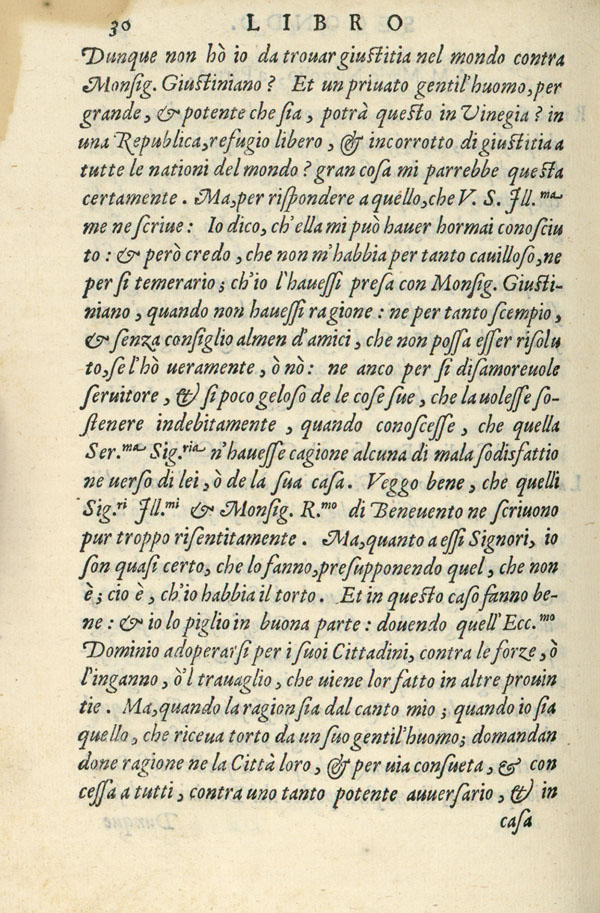 30 LIBRO
Dunque non hò io da trouar giustitia nel mondo contra
Monsig. Giustiniano? Et un priuato gentil'huomo, per
grande, & potente che sia, potrà questo in Vinegia? in
una Republica, refugio libero, & incorrotto di giustitia a
tutte le nationi del mondo? gran cosa mi parrebbe questa
certamente. Ma, per rispondere a quello, che V. S. Ill.ma
me ne scriue: Io dico, ch'ella mi può hauer hormai conosciu
to: & però credo, che non m'habbia per tanto cauilloso, ne
per si temerario; ch'io l'hauessi presa con Monsig. Giusti-
niano, quando non hauessi ragione: ne per tanto scempio,
& senza consiglio almen d'amici, che non possa esser risolu
to, se l'hò ueramente, ò nò: ne anco per si disamoreuole
seruitore, & si poco geloso de le cose sue, che la uolesse so-
stenere indebitamente, quando conoscesse, che quella
Ser.ma Sig.ria n'hauesse cagione alcuna di mala sodisfattio
ne uerso di lei, ò de la sua casa. Veggo bene, che quelli
Sig.ri Ill.mi & Monsig. R.mo di Beneuento ne scriuono
pur troppo risentitamente. Ma, quanto a essi Signori, io
son quasi certo, che lo fanno, presupponendo quel, che non
è; cio è, ch'io habbia il torto. Et in questo caso fanno be-
ne: & io lo piglio in buona parte: douendo quell'Ecc.mo
Dominio adoperarsi per i suoi Cittadini, contra le forze, ò
l'inganno, ò'l trauaglio, che uiene lor fatto in altre prouin
tie. Ma, quando la ragion sia dal canto mio; quando io sia
quello, che riceua torto da un suo gentil'huomo; domandan
done ragione ne la Città loro, & per uia consueta, & con
cessa a tutti, contra uno tanto potente auuersario, & in
casa